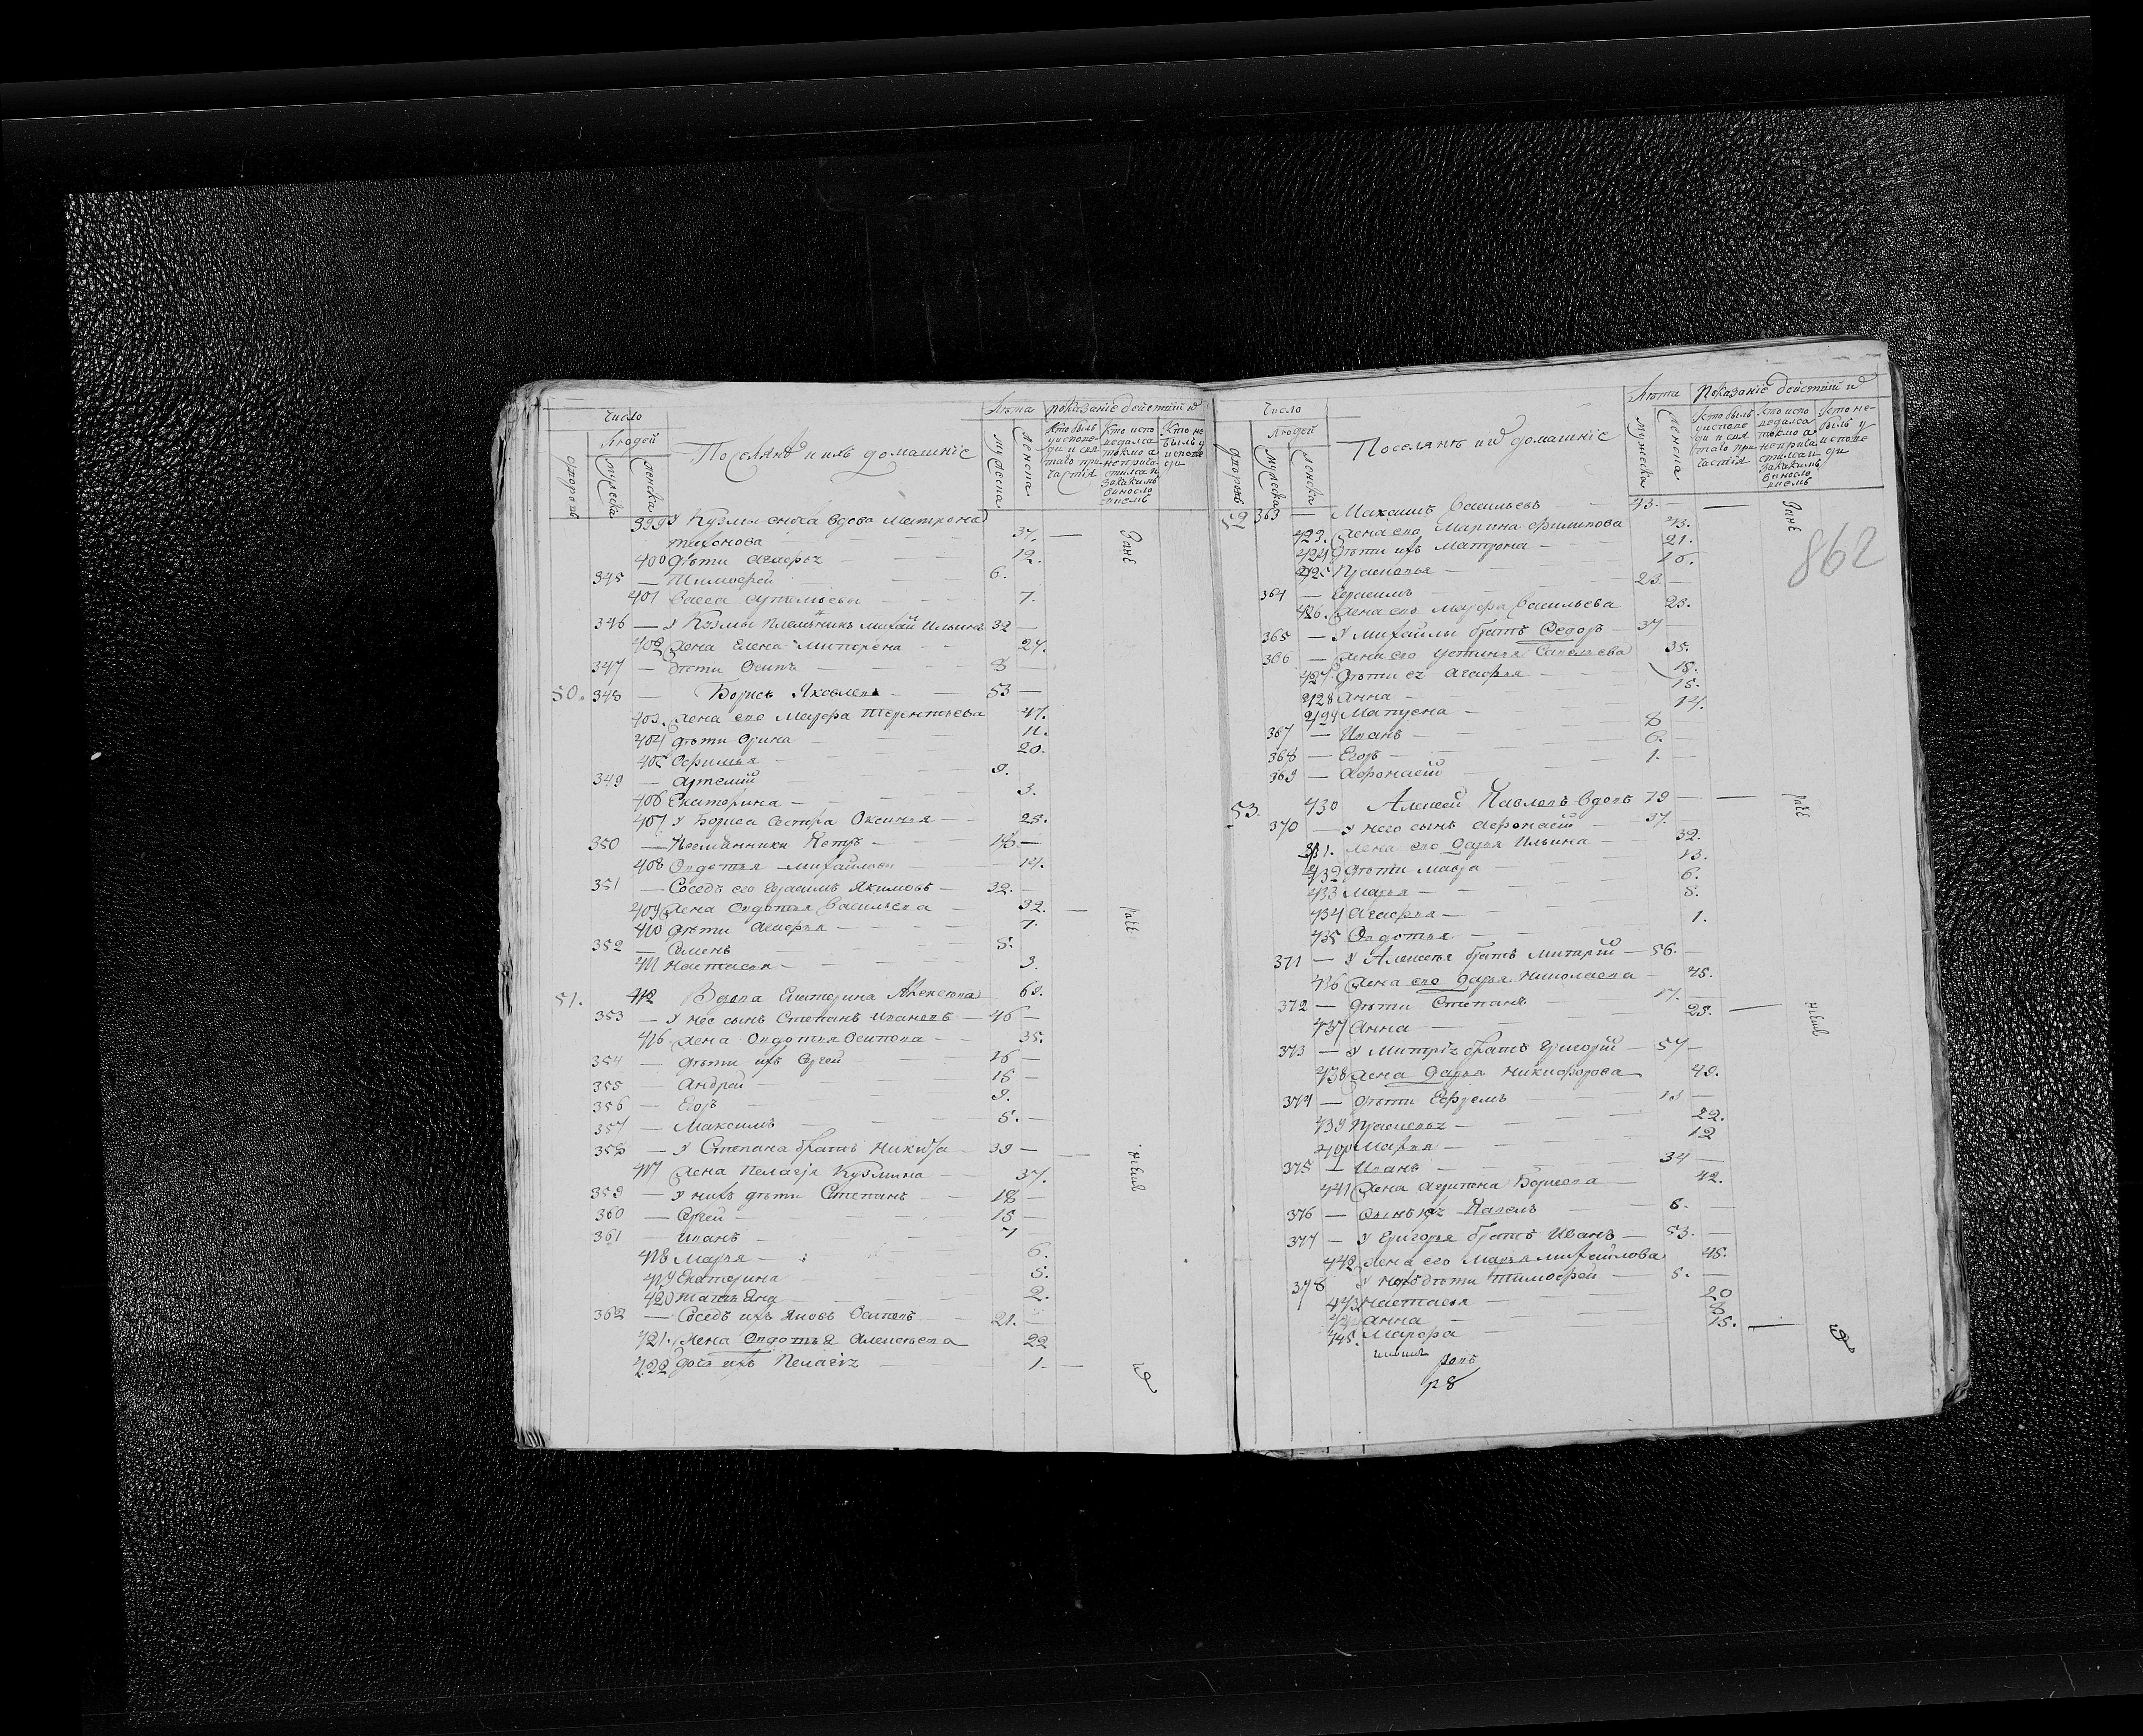 Число
Людей
дворовъ
мужеска
женска
Поселянѣ и ихъ домашніе
Лѣта
мужеска
женска
показаніе действій
Кто былъ у исповеди и святаго причастія
Кто исповедался токмо а непричастился и за какимъ винословіемъ
Кто не былъ у исповеди
399 У Кузмы сноха вдова Матрона
тихонова — 37. —
400 Дѣти Агафья — 12.
345 — Тимофей — 6.
401 Васса артемьева — 7.
346 — У Кузмы племянникъ Михай Ильинъ 32 —
402 Жена Елена — 27.
347 — Дѣти Осипъ — 8
50. 348 — Борисъ Яковлевъ — 53 —
403. Жена его Марфа Терентьева 47.
404 Дѣти Орина — 11.
405 Офимья — 20.
349 — Артемий — 9.
406 Екатерина — 3.
407 У Бориса сестра Оксинья — 28.
350 — Племянники Петръ — 18 —
408 Овдотья михайлова — 14.
351 — Соседъ его Герасимъ Якимовъ — 32. —
409 Жена Овдотья Васильева — 32. —
410 Дѣти Агафья — 7.
352 — Семенъ — 5.
411 Настасья — 3.
51. 412 Вдова Екатерина Алексеева 69.
353 — У нее сынъ Степанъ Ивановъ — 46 —
416 Жена Овдотья Осипова — 35.
354 — Дѣти ихъ Сергей — 16 —
355 — Андрей — 15 —
356 — Егоръ — 9.
357 — Максимъ — 5. —
358 — У Степана братъ Никита — 39 —
417 Жена Пелагія Кузмина — 37.
359 — У нихъ дѣти Степанъ — 18 —
360 — Сергей — 13 —
361 — Иванъ — 7 —
418 Марья — 6.
419 Екатерина — 5.
420 Татьяна — 2.
362 — Соседъ ихъ Яковъ Осиповъ — 21. —
421. Жена Овдотья Алексеева 22
422 Дочь ихъ Пелагія — 1. —
Число
Людей
дворовъ
мужеска
женска
Поселянѣ и ихъ домашніе
Лѣта
мужеска
женска
Показаніе действій
Кто былъ у исповеди и святаго причастія
Кто исповедался токмо а непричастился и за какимъ винословіемъ
Кто не былъ у исповеди
862
52 363 — Максимъ Васильевъ — 43. —
423. Жена его Марина Филипова 43.
424 Дѣти ихъ Матрона — 21.
425 Прасковья — 16.
364 — Герасимъ — 23. —
426. Жена его Марфа Васильева 23.
365 — У Михайлы братъ Федоръ — 37 —
366 — Жена его Устинья Савельева 35.
427 Дѣти ея Агафья — 18.
428 Анна — 15.
429 Матрена — 14.
367 — Иванъ — 8
368 — Егоръ — 6. —
369 — Афонасій — 1. —
53. 430 Алексей Павловъ вдовъ 79 —
370 — У него сынъ Афонасій — 37.
431. Жена его Дарья Ильина — 32.
432 Дѣти Мавра — 13.
433 Марья — 6.
434 Агафья — 8.
435 Овдотья — 1.
371 — У Алексея братъ Митрій — 56. —
436 Жена его Дарья Николаева — 45.
372 — Дѣти Степанъ — 17.
437 Анна — 23. —
373 — У Митрія братъ Григорій — 54 —
438 Жена Дарья Никифорова — 49.
374 — Дѣти Ефремъ — 13 —
439 Прасковья — 22.
440 Марья — 12
375 — Иванъ — 34 —
441 Жена Акулина Борисова — 42.
376 — Сынъ ея Павелъ — 8. —
377 — У Григорья братъ Иванъ — 53. —
442 Жена его Марья михайлова 45.
378 У нихъ дѣти Тимофей — 5. —
443 Настасья — 20
444 Анна — 8
445. Марфа — 15. —